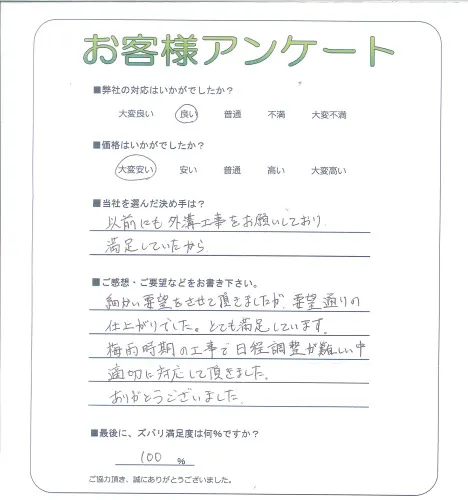 お客様アンケート
■弊社の対応はいかがでしたか?
大変良い 良い 普通 不満 大変不満
■価格はいかがでしたか?
大変安い 安い 普通 高い 大変高い
■当社を選んだ決め手は?
以前にも外溝工事をお願いしており
満足していたから
■ご感想・ご要望などをお書き下さい。
細かい要望をさせて頂きましたが、要望通りの
仕上がりでした。とても満足しています。
梅雨時期の工事で日程調整が難しい中
適切に対応して頂きました。
ありがとうございました。
■最後に、ズバリ満足度は何%ですか?
100 %
ご協力頂き、誠にありがとうございました。